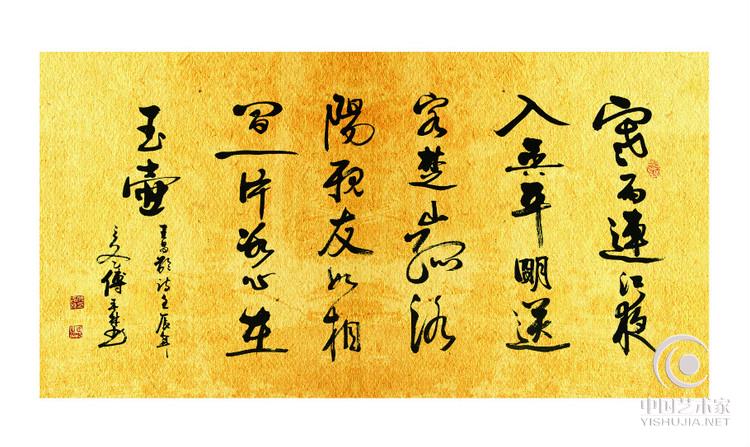 寒雨連江夜
入吳平明送
客楚山孤洛
陽親友如相
問一片冰心在
玉壺
王昌齡詩壬辰年
傅
中国艺术家
YISHUJIA.NET